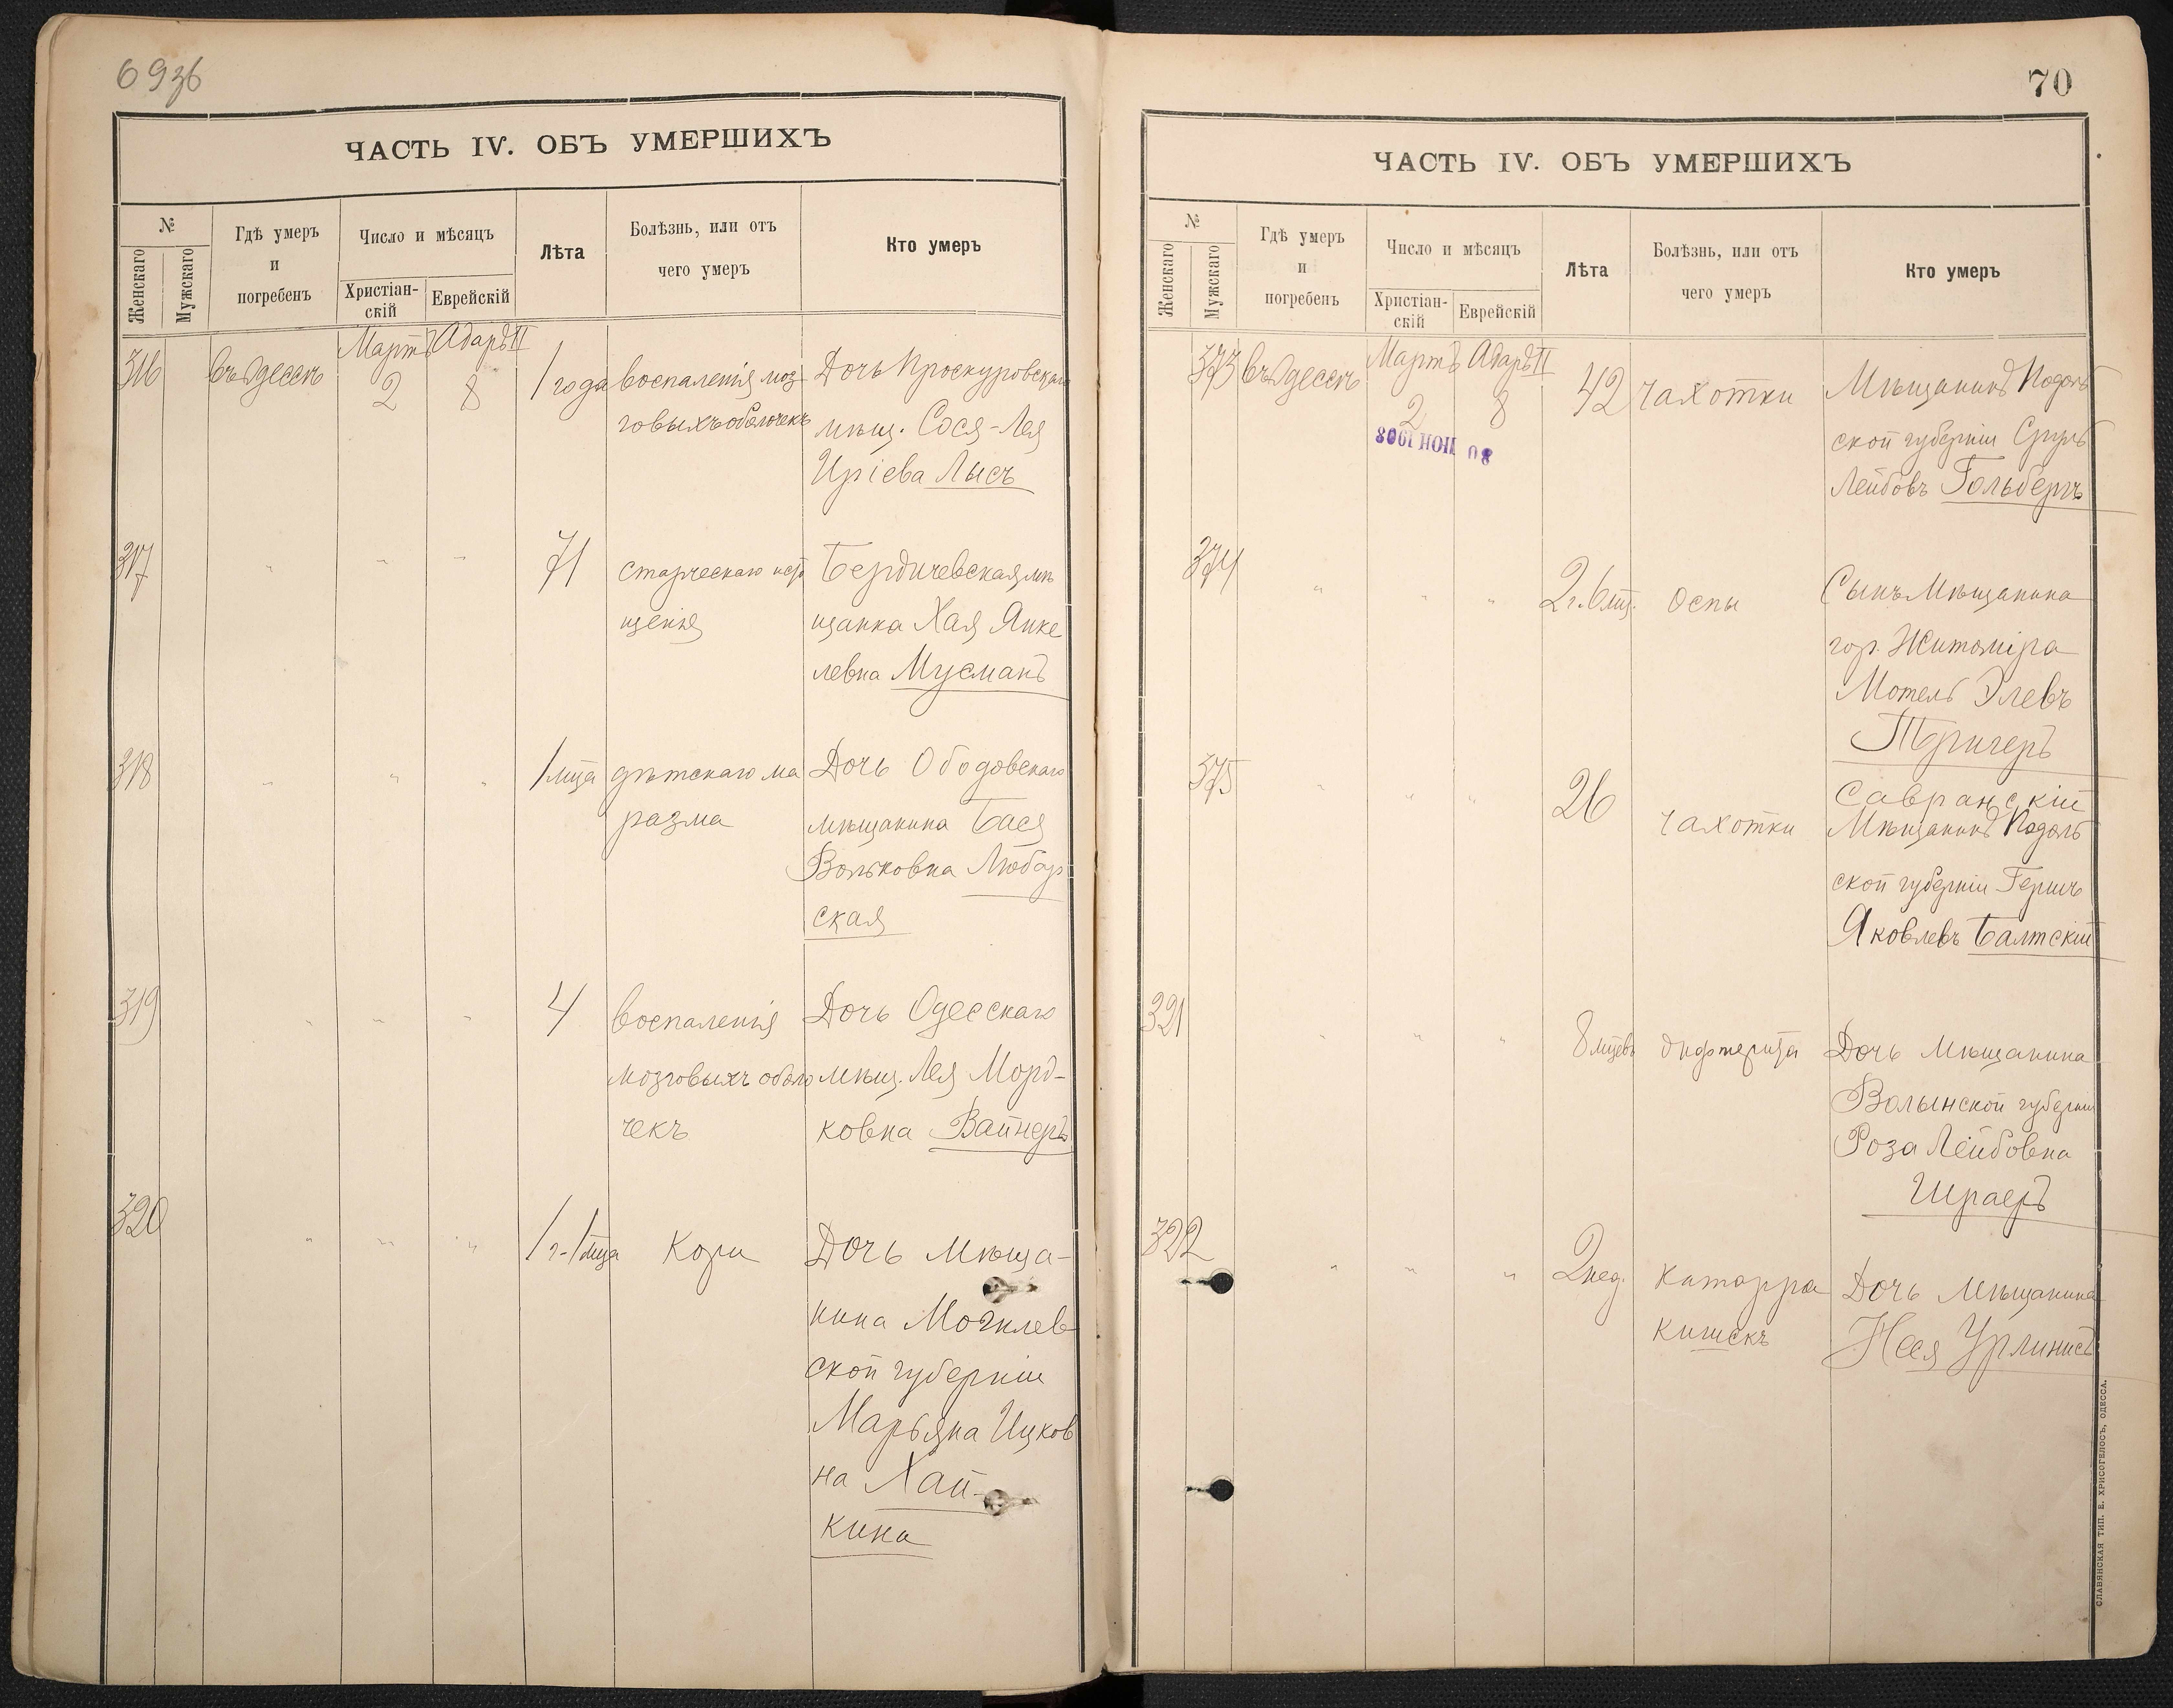 69 зб
ЧАСТЬ IV. ОБЪ УМЕРШИХЪ
№
Женскаго
Мужскаго
Гдѣ умеръ
и
погребенъ
Число и мѣсяцъ
Христіан-
скій
Еврейскій
Лѣта
Болѣзнь, или отъ
чего умеръ
Кто умеръ
Мартъ Адаръ II
316 въ Одессѣ 2 8 1 года воспаленія моз Дочь Проскуровскаго
говыхъ оболочекъ мѣщ. Сося-Лея
Иріева Лысъ
317 " " " 71 старческаго исто Бердичевская мѣ
щенія щанка Хая Янке
левна Мусманъ
318 " " " 1 мца дѣтскаго ма Дочь Ободовскаго
разма мѣщанина Бася
Вольковна Любар
ская
319 " " " 4 воспаленія Дочь Одесскаго
мозговыхъ оболо мѣщ. Лея Морд-
чекъ ковна Вайнеръ
320 " " " 1 г. 1 мца Кори Дочь мѣща-
нина Могилев
ской губерніи
Марьяна Ицков
на Хай-
кина
70
ЧАСТЬ IV. ОБЪ УМЕРШИХЪ
№
Женскаго
Мужскаго
Гдѣ умеръ
и
погребенъ
Число и мѣсяцъ
Христіан-
скій
Еврейскій
Лѣта
Болѣзнь, или отъ
чего умеръ
Кто умеръ
Мартъ Адаръ II
373 въ Одессѣ 2 8 42 чахотки Мѣщанинъ Подоль
ской губерніи Сруль
Лейбовъ Гольбергъ
374 " " " 2 г. 6 мц. оспы Сынъ Мѣщанина
гор. Житоміра
Мотель Элевъ
Тригеръ
375 " " " 26 чахотки Савранскій
Мѣщанинъ Подоль
ской губерніи Гершъ
Яковлевъ Балтскій
321 " " " 8 мцевъ дифтерита Дочь Мѣщанина
Волынской губерніи
Роза Лейбовна
Шраеръ
322 " " " 2 нед. катарра Дочь мѣщанина
кишекъ Нея Урлинисъ
СЛАВЯНСКАЯ ТИП. Е. ХРИСОГЕЛОСЪ, ОДЕССА.